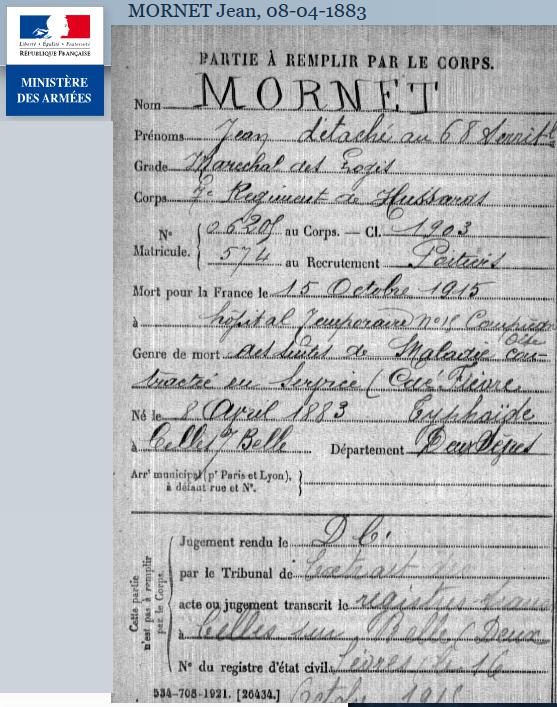 MORNET Jean, 08-04-1883
Liberté • Égalité • Fraternité
RÉPUBLIQUE FRANÇAISE
MINISTÈRE
DES ARMÉES
PARTIE À REMPLIR PAR LE CORPS.
Nom MORNET
Prénoms Jean détaché au 68
Grade Marechal des Logis
Corps 7e Regiment de Hussards
N° Matricule. 06205 au Corps. — Cl. 1903
574 au Recrutement Poitiers
Mort pour la France le 15 Octobre 1915
à hôpital Temporaire N° 18 Compiègne
Oise
Genre de mort des suites de Maladie con-
tractée en Service (
Né le 8 Avril 1883 Typhoide
à Celles s/ Belle Département Deux Sèvres
Arrt municipal (pr Paris et Lyon),
à défaut rue et N°.
Cette partie
n'est pas à remplir
par le Corps.
Jugement rendu le D C.
par le Tribunal de Extrait
acte ou jugement transcrit le registre
à Celles sur Belle (Deux
N° du registre d'état civil Sèvres le 16
534-708-1921. [26434.] Octobre